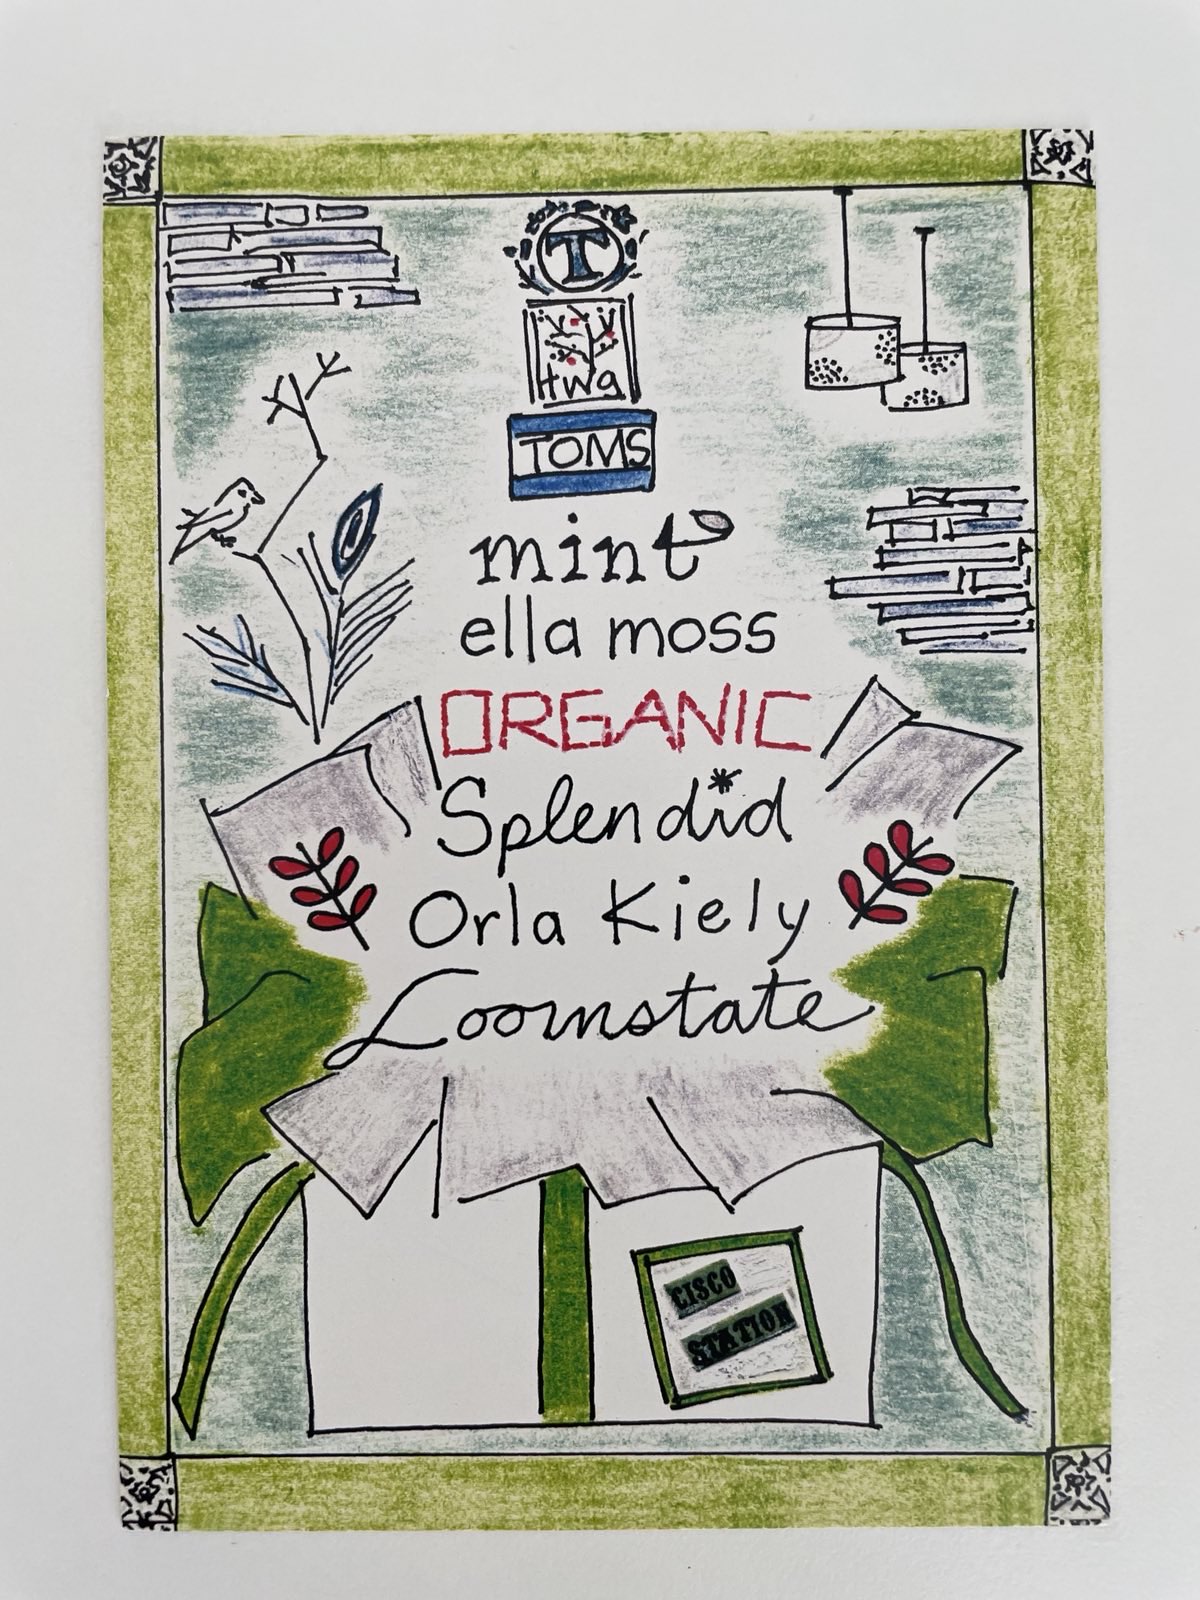 T
twg
TOMS
mint
ella moss
ORGANIC
Splendid
Orla Kiely
Loomstate
CISCO
STATION